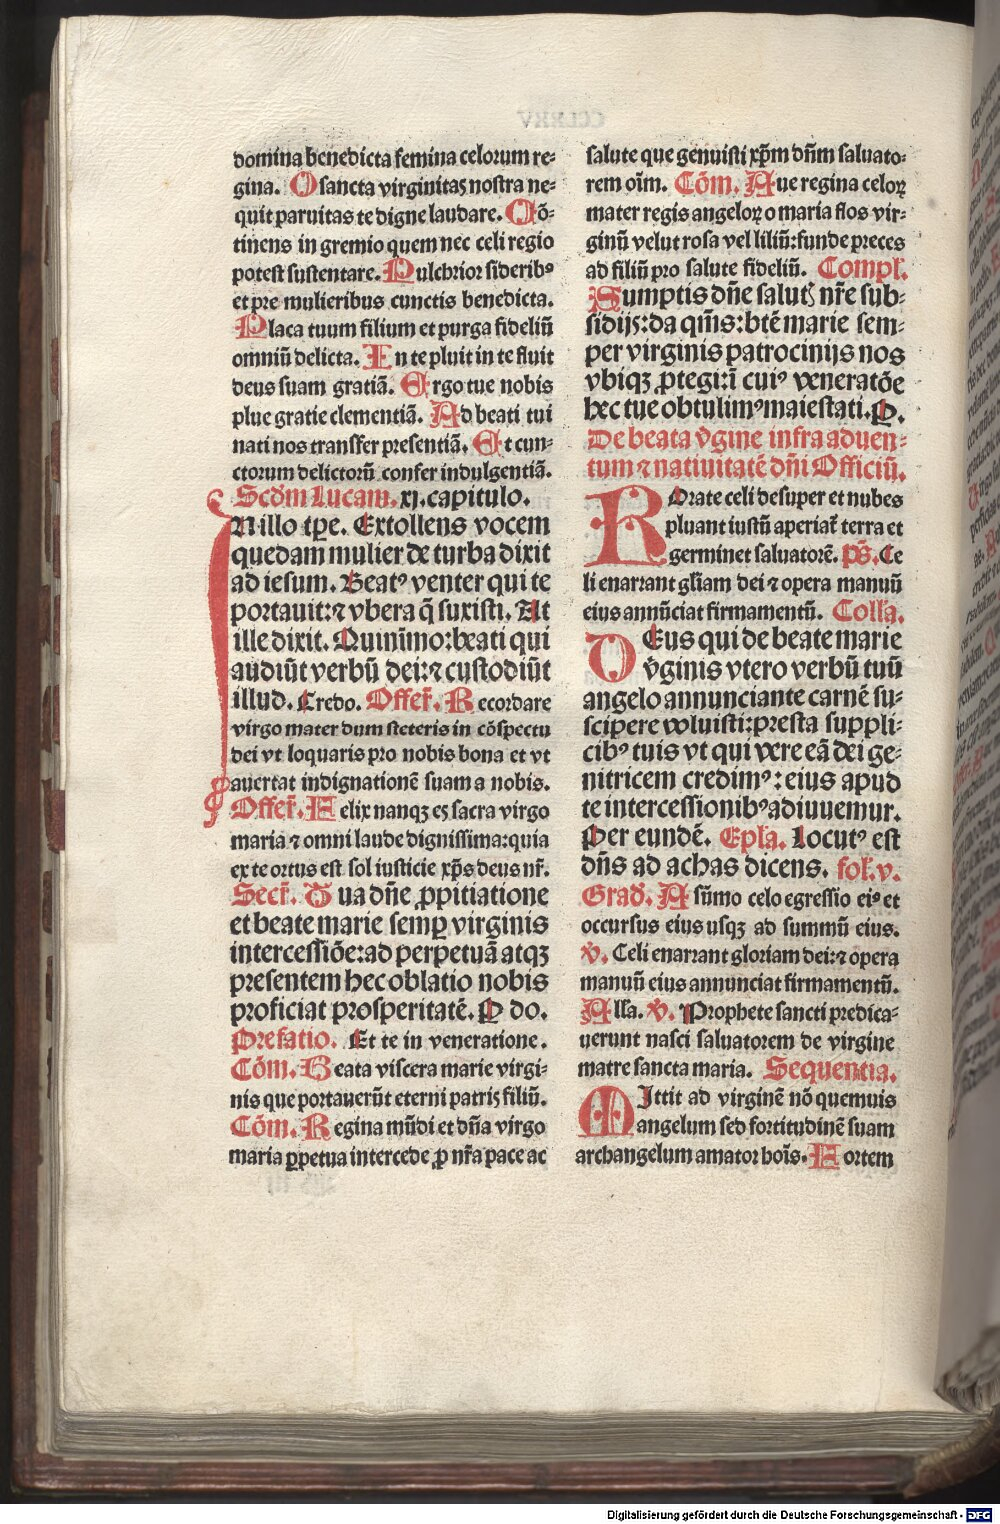 domina benedicta femina celorum re-
gina. O sancta virginitas nostra ne-
quit paruitas te digne laudare. Cō-
tinens in gremio quem nec celi regio
potest sustentare. Pulchrior sideribꝰ
et pre mulieribus cunctis benedicta.
Placa tuum filium et purga fideliū
omniū delicta. In te pluit in te fluit
deus suam gratiā. Ergo tue nobis
plue gratie clementiā. Ad beati tui
nati nos transfer presentiā. Et cun-
ctorum delictorū confer indulgentiā.
Scd̄m Lucam. xj. capitulo.
IN illo tp̄e. Extollens vocem
quedam mulier de turba dixit
ad iesum. Beatꝰ venter qui te
portauit: ⁊ vbera q̄ suxisti. At
ille dixit. Quinīmo: beati qui
audiūt verbū dei: ⁊ custodiūt
illud. Credo. Offer̄. Recordare
virgo mater dum steteris in cōspectu
dei vt loquaris pro nobis bona et vt
auertat indignationē suam a nobis.
Offer̄. Felix nanqꝫ es sacra virgo
maria ⁊ omni laude dignissima: quia
ex te ortus est sol iusticie xp̄s deus nr̄.
Secr̄. Tua dn̄e ꝓpitiatione
et beate marie semꝑ virginis
intercessiōe: ad perpetuā atqꝫ
presentem hec oblatio nobis
proficiat prosperitatē. P do.
Prefatio. Et te in veneratione.
Cōm. Beata viscera marie virgi-
nis que portauerūt eterni patris filiū.
Cōm. Regina mūdi et dn̄a virgo
maria ꝑpetua intercede ꝓ nr̄a pace ac
salute que genuisti xp̄m dn̄m saluato-
rem oīm. Cōm. Aue regina celoꝝ
mater regis angeloꝝ o maria flos vir-
ginū velut rosa vel liliū: funde preces
ad filiū pro salute fideliū. Compl̄.
Sumptis dn̄e salutꝭ nr̄e sub-
sidijs: da qm̄s: btē marie sem-
per virginis patrocinijs nos
vbiqꝫ ꝓtegi: ī cuiꝰ veneratōe
hec tue obtulimꝰ maiestati. P.
De beata v̄gine infra aduen-
tum ⁊ natiuitatē dn̄i Officiū.
ROrate celi desuper et nubes
pluant iustū aperiat̄ terra et
germinet saluatorē. ps̄. Ce
li enarrant gl̄iam dei ⁊ opera manuū
eius annūciat firmamentū. Coll̄a.
DEus qui de beate marie
v̄ginis vtero verbū tuū
angelo annunciante carnē su-
scipere voluisti: presta suppli-
cibꝰ tuis vt qui vere eā dei ge-
nitricem credimꝰ: eius apud
te intercessionibꝰ adiuuemur.
Per eundē. Epl̄a. Locutꝰ est
dn̄s ad achas dicens. fol̄. v.
Grad̄. A sūmo celo egressio eiꝰ et
occursus eius usqꝫ ad summū eius.
v̄. Celi enarrant gloriam dei: ⁊ opera
manuū eius annunciat firmamentū.
All̄a. v̄. Prophete sancti predica-
uerunt nasci saluatorem de virgine
matre sancta maria. Sequentia.
MIttit ad virginē nō quemuis
angelum sed fortitudinē suam
archangelum amator hoīs. Fortem
Digitalisierung gefördert durch die Deutsche Forschungsgemeinschaft - DFG